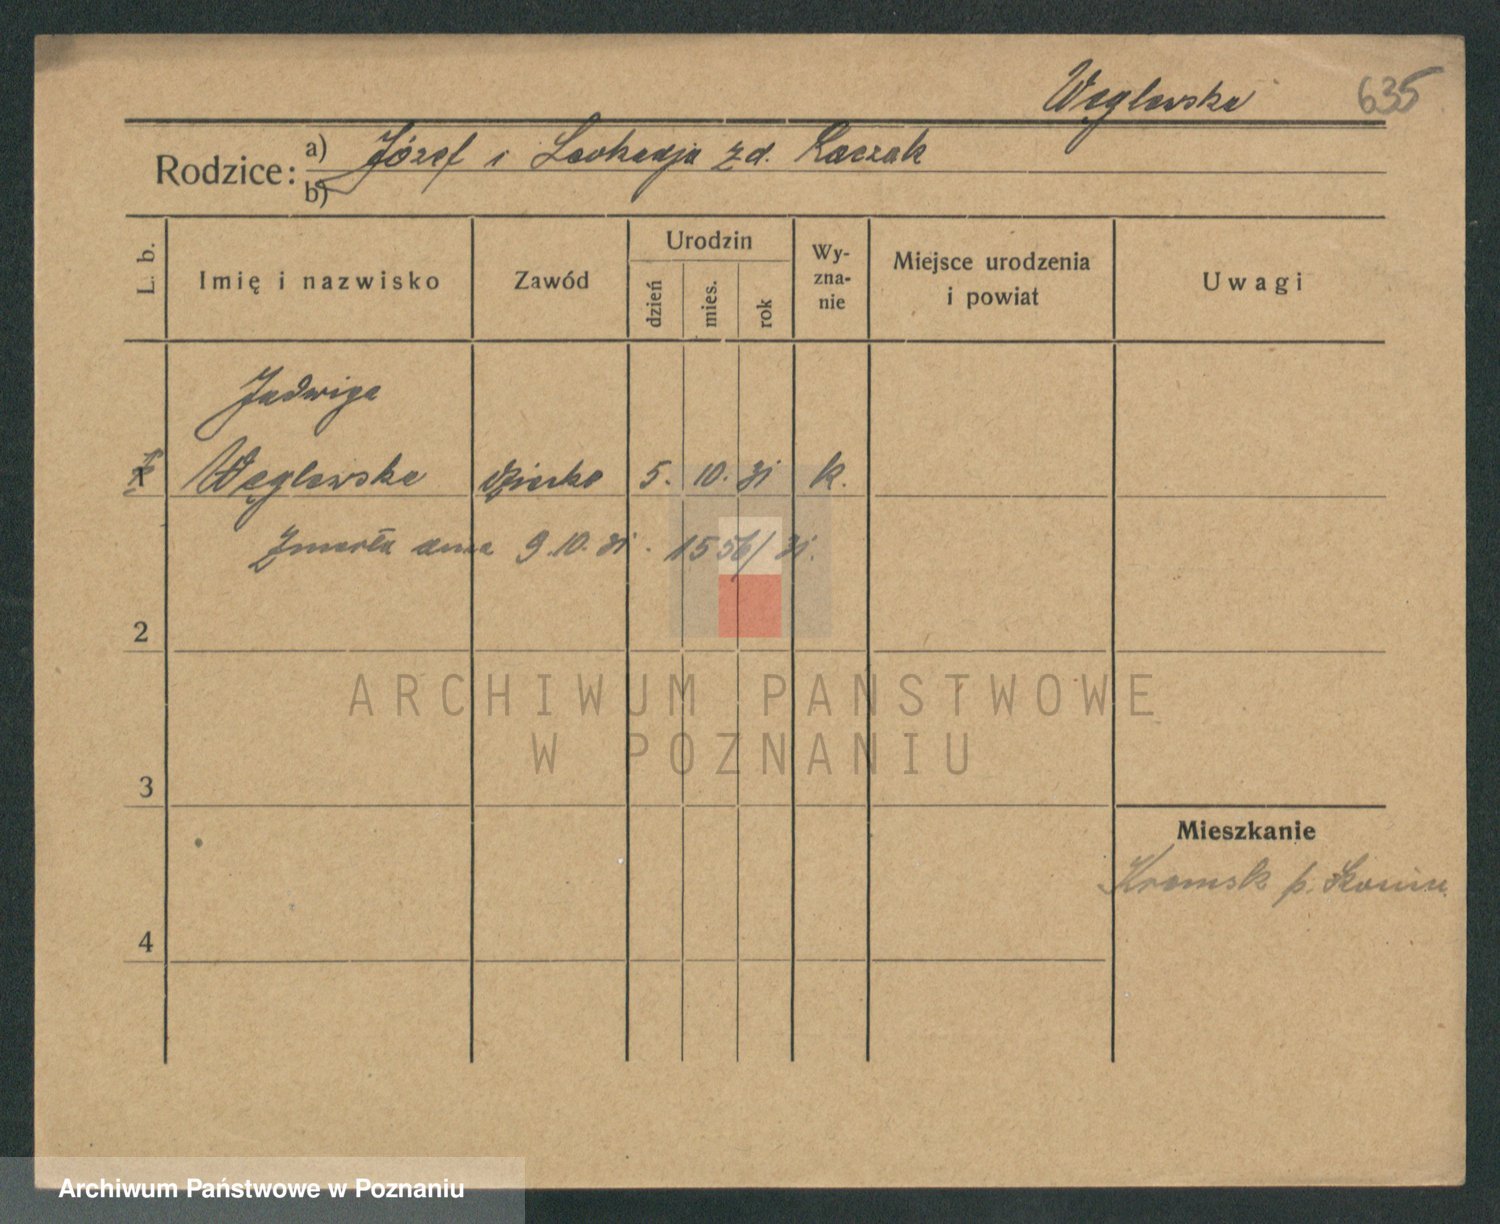 Węglewska 635
Rodzice: a) Józef i Leokadja z d. Kaczak
b)
L. b. Imię i nazwisko Zawód Urodzin dzień mies. rok Wyznanie Miejsce urodzenia i powiat Uwagi
Jadwiga
Węglewska dziecko 5. 10. 31 k.
Zmarła dnia 9.10.31. 1556/31.
2
ARCHIWUM PAŃSTWOWE
W POZNANIU
3
Mieszkanie
Kramsk p. Konin
4
Archiwum Państwowe w Poznaniu